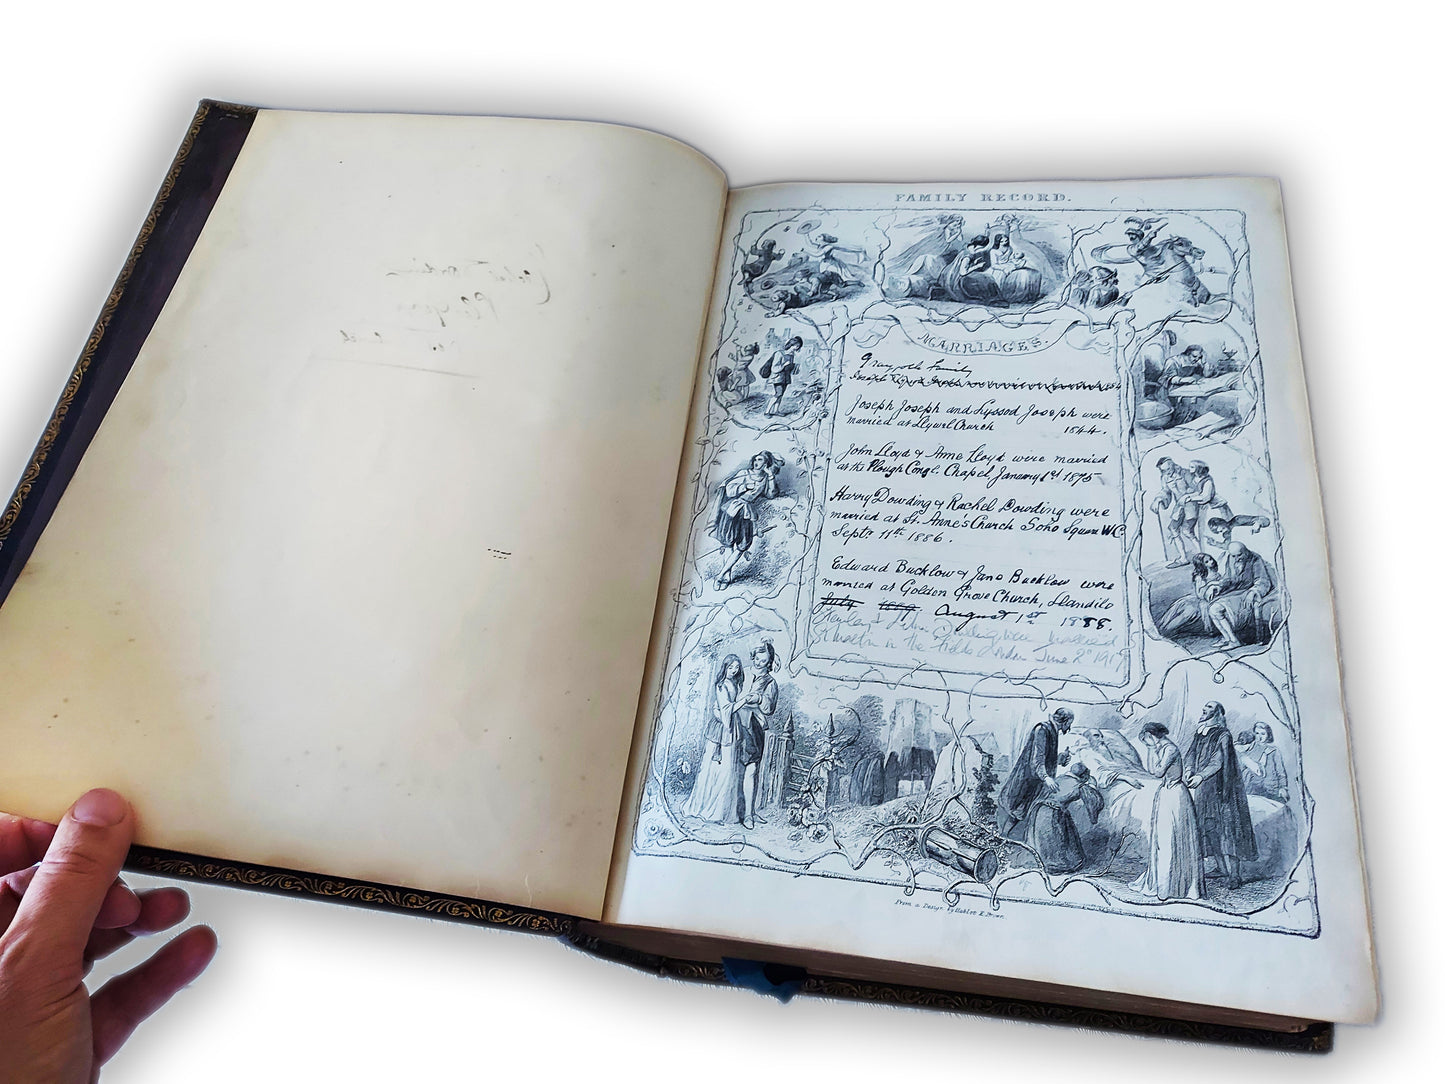 FAMILY RECORD.
MARRIAGES.
Family
Joseph
Joseph Joseph and Lyssod Joseph were
married at Llywel Church 1844.
John Lloyd & Anne Lloyd were married
at the Plough Congl. Chapel, January 1st 1875
Harry Dowding & Rachel Dowding were
married at St. Anne's Church Soho Square W.C.
Septr 11th 1886.
Edward Bucklow & Jane Bucklow were
married at Golden Grove Church, Llandilo
July 1889. August 1st 1888.
married
in the Fields London June 2 1917
From a Design by Hablot K. Brown